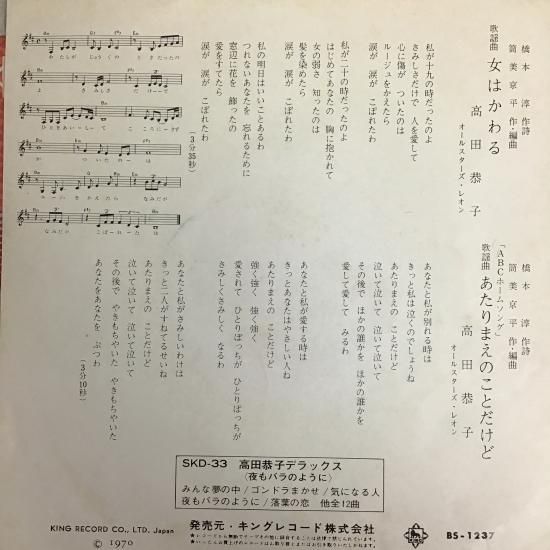 橋本 淳 作詩
筒美京平 作・編曲
歌謡曲 女はかわる
高田恭子
オールスターズ・レオン
私が十九の時だったのよ
さみしさだけで 人を愛して
心に傷が ついたのは
ルージュをかえたら
涙が 涙が こぼれたわ
私が二十の時だったのよ
はじめてあなたの 胸に抱かれて
女の弱さ 知ったのは
髪を染めたら
涙が 涙が こぼれたわ
私の明日はいいことあるわ
つれないあなたを 忘れるために
窓辺に花を 飾ったの
愛をすてたら
涙が 涙が こぼれたわ
(3分35秒)
橋本 淳 作詩
筒美京平 作・編曲
「ABCホームソング」
歌謡曲 あたりまえのことだけど
高田恭子
オールスターズ・レオン
あなたと私が別れる時は
きっと私は泣くのでしょうね
あたりまえの ことだけど
泣いて泣いて 泣いて泣いて
その後で ほかの誰かを ほかの誰かを
愛して愛して みるわ
あなたと私が愛する時は
きっとあなたはやさしい人ね
あたりまえの ことだけど
強く強く 強く強く
愛されて ひとりぼっちが ひとりぼっちが
さみしくさみしく なるわ
あなたと私がさみしいわけは
きっと二人がすねてるせいね
あたりまえの ことだけど
泣いて泣いて 泣いて泣いて
その後で やきもちやいた やきもちやいた
あなたをあなたを ぶつわ
(3分10秒)
SKD-33 高田恭子デラックス
〈夜もバラのように〉
みんな夢の中/ゴンドラまかせ/気になる人
夜もバラのように/落葉の恋 他全12曲
KING RECORD CO., LTD. Japan
Ⓒ 1970
発売元・キングレコード株式会社
BS-1237